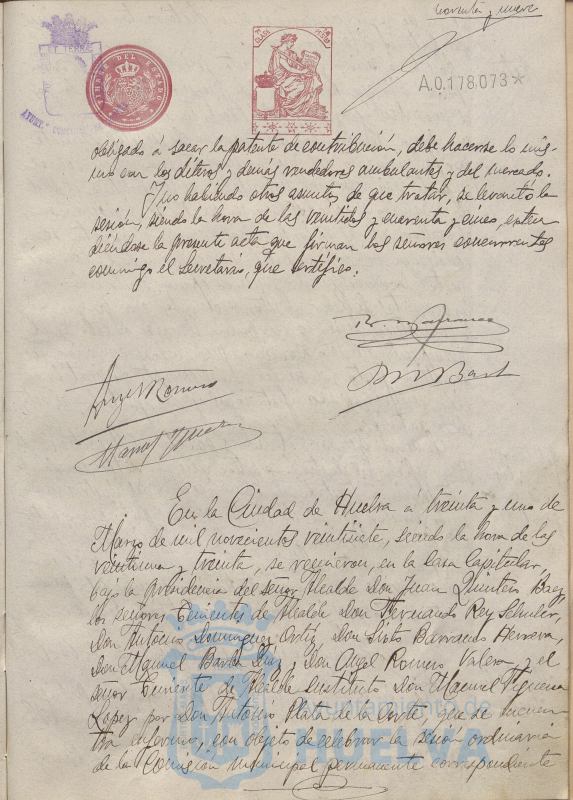 noventa y nueve
A.0.178.073*
TIMBRE DEL ESTADO
obligado á sacar la patente de contribución, debe hacerse lo mis-
mo con los diteros y demás vendedores ambulantes y del mercado.
Y no habiendo otros asuntos de que tratar, se levantó la
sesión, siendo la hora de las veintidos y cuarenta y cinco, exten
diéndose la presente acta que firman los señores concurrentes
conmigo el Secretario, que certifico.
Angel Romero
Manuel
En la Ciudad de Huelva á treinta y uno de
Marzo de mil novecientos veintisiete, siendo la hora de las
veintiuna y treinta, se reunieron, en la Casa Capitular,
bajo la presidencia del señor Alcalde Don Juan Quintero Baez
los señores Tenientes de Alcalde Don Fernando Rey Schuler,
Don Antonio Dominguez Ortiz, Don Sixto Barranco Herrera,
Don Manuel Barba Diaz, Don Angel Romero Valero y el
señor Teniente de Alcalde Sustituto Don Manuel Figueroa
Lopez por Don Antonio Plata de la Corte, que se encuen
tra enfermo, con objeto de celebrar la sesión ordinaria
de la Comisión municipal permanente correspondiente
Ayuntamiento de
HUELVA